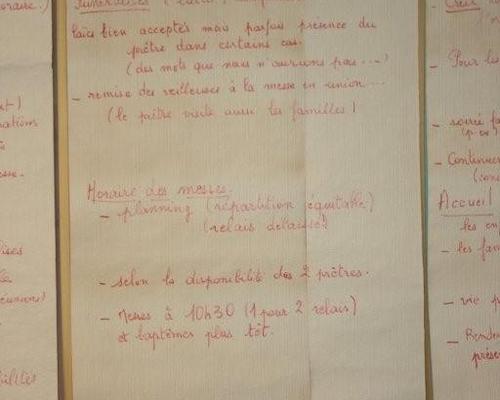 horaire.)
Funérailles
laïcs bien acceptés mais parfois présence du
prêtre dans certains cas.
(des mots que nous n'aurions pas ...)
- remise des veilleuses à la messe en union...
(le prêtre visite aussi les familles)
Horaire des messes.
- planning (répartition équitable)
(relais délaissé)
- selon la disponibilité des 2 prêtres.
- Messes à 10h30 (1 pour 2 relais)
et baptêmes plus tôt.
- Pour les
- soirée fa
- Continuer
Accueil
les en
- les fam
- vie p
- Rendre
prése